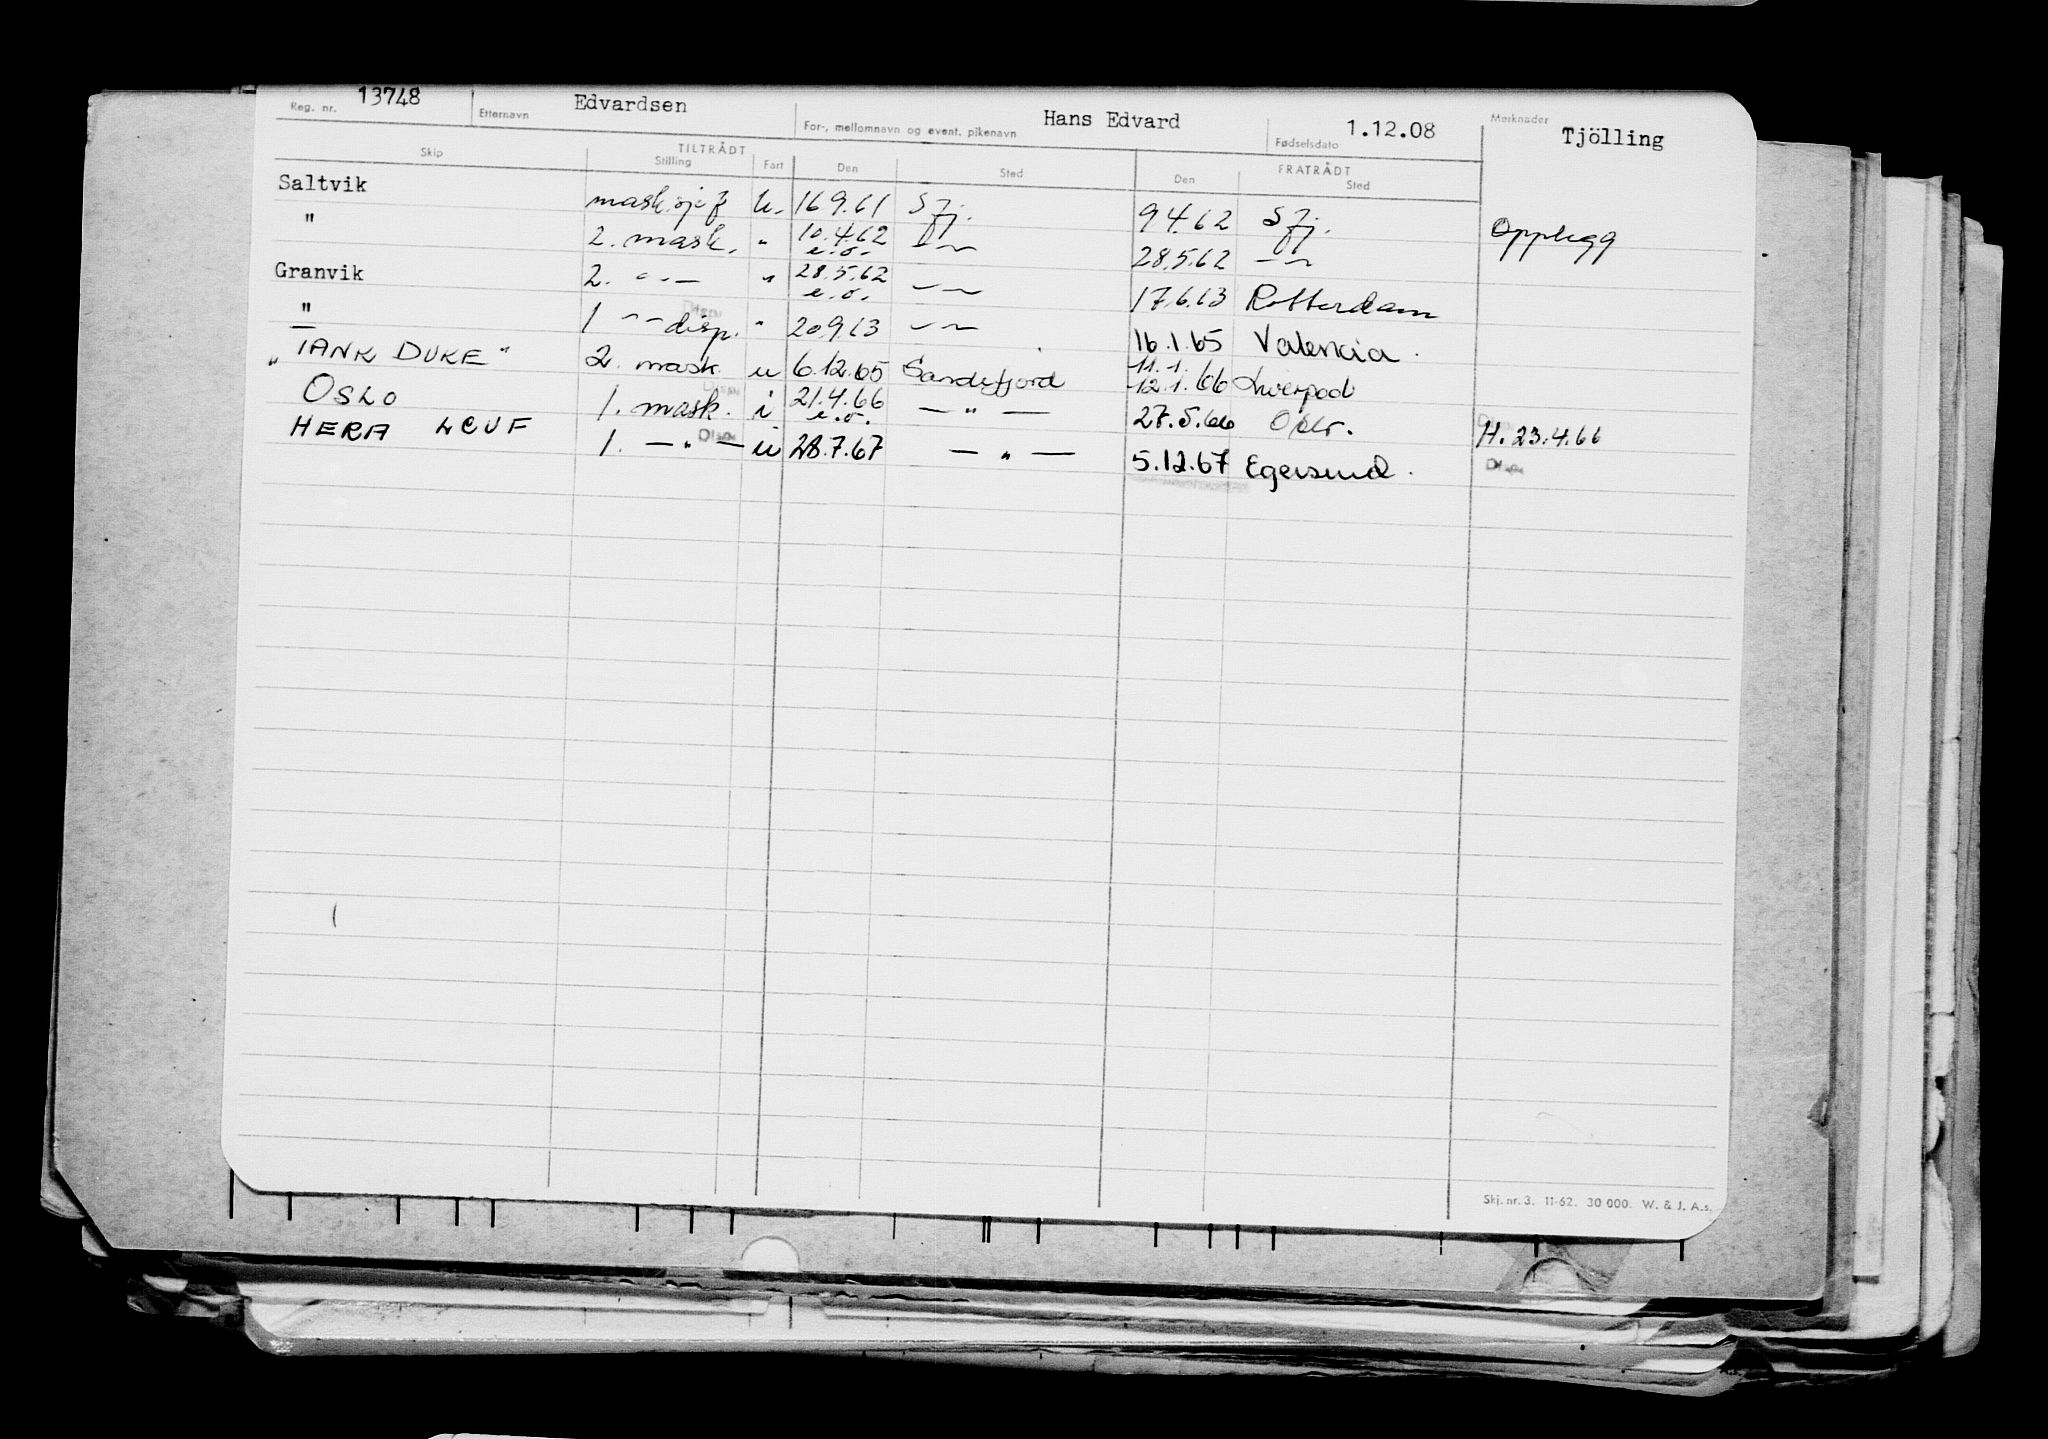 Reg. nr. 13748 Etternavn Edvardsen For-, mellomnavn og event. pikenavn Hans Edvard Fødselsdato 1.12.08 Merknader Tjölling
Skip TILTRÅDT Stilling Fart Den Sted FRATRÅDT Den Sted
Saltvik mask.sjef u. 16.9.61 Sfj. 9.4.62 Sfj. Opplegg
" 2. mask. " 10.4.62 e.o. — " — 28.5.62 — " —
Granvik 2. — " — " 28.5.62 e.o. — " — 17.6.63 Rotterdam
" 1 — " — disp. " 20.9.63 — " — 16.1.65 Valencia.
"TANK DUKE" 2. mask. u 6.12.65 Sandefjord 11.1. 12.1.66 Liverpool
OSLO 1. mask. Disp. i 21.4.66 e.o. — " — 27.5.66 Oslo. H. 23.4.66
HERA 1. — " — Disp. u 28.7.67 — " — 5.12.67 Egersund. Disp.
Skj. nr. 3. 11-62. 30 000. W. & J. A.s.